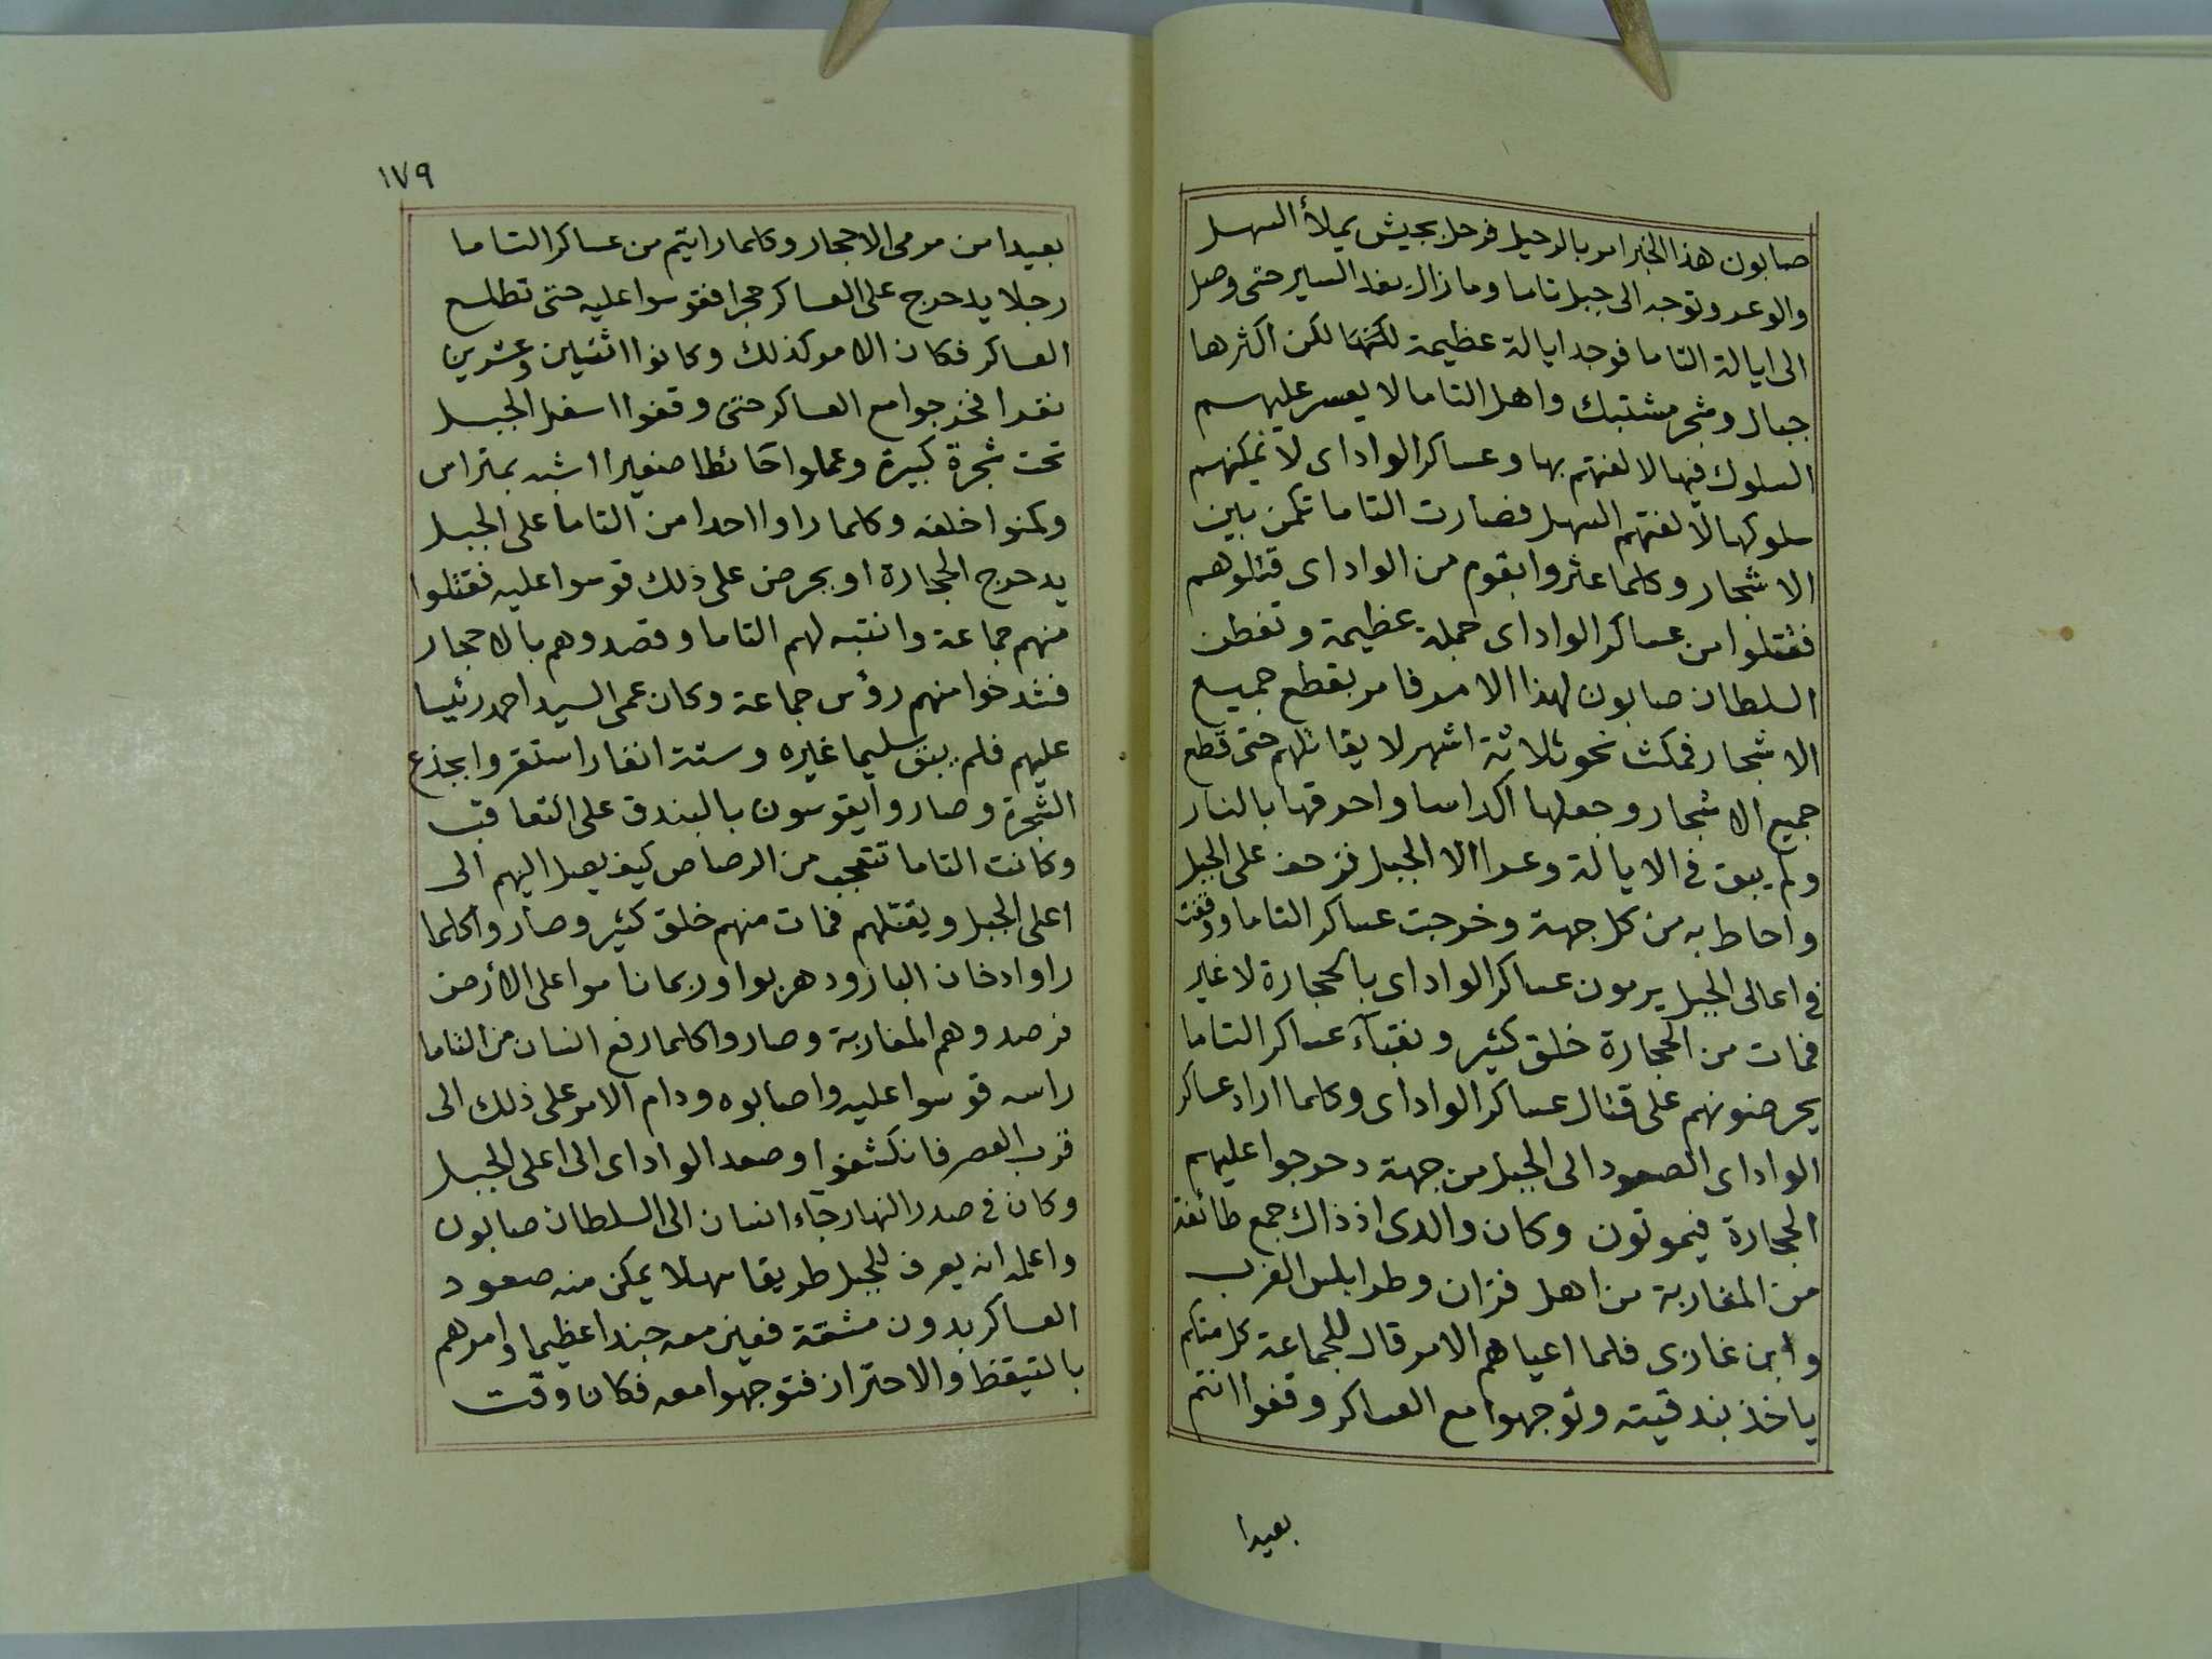 صابون هذا الخبر امر بالرحيل فرحل بجيش يملأ السهل
والوعر وتوجه الى جبل تاما وما زال يغذ السير حتى وصل
الى ايالة التاما فوجد ايالة عظيمة لكنها لكن اكثرها
جبال وشجر مشتبك واهل التاما لا يعسر عليهم
السلوك فيها لالفتهم بها وعساكر الواداى لا يمكنهم
سلوكها لالفتهم السهل فصارت التاما تكمن بين
الاشجار وكلما عثروا بقوم من الواداى قتلوهم
فقتلوا من عساكر الواداى جملة عظيمة وتفطن
السلطان صابون لهذا الامر فامر بقطع جميع
الاشجار فمكث نحو ثلاثة اشهر لا يقاتلهم حتى قطع
جميع الاشجار وجعلها اكداسا واحرقها بالنار
ولم يبق فى الايالة وعرا الا الجبل فزحف على الجبل
واحاط به من كل جهة وخرجت عساكر التاما ووقفت
فى اعالى الجبل يرمون عساكر الواداى بالحجارة لا غير
فمات من الحجارة خلق كثير ونقباء عساكر التاما
يحرضونهم على قتال عساكر الواداى وكلما اراد عساكر
الواداى الصعود الى الجبل من جهة دحرجوا عليهم
الحجارة فيموتون وكان والدى اذ ذاك جمع طائفة
من المغاربة من اهل فزان وطرابلس الغرب
وابن غازى فلما اعياهم الامر قال للجماعة كل منكم
ياخذ بندقيته وتوجهوا مع العساكر وقفوا انتم
بعيدا
١٧٩
بعيدا من مرمى الاحجار وكلما رايتم من عساكر التاما
رجلا يدحرج على العساكر حجرا فقوسوا عليه حتى تطلع
العساكر فكان الامر كذلك وكانوا اثنين وعشرين
نفرا فخرجوا مع العساكر حتى وقفوا اسفل الجبل
تحت شجرة كبيرة وعملوا حائطا صغيرا اشبه بمتراس
وكمنوا خلفه وكلما راوا احدا من التاما على الجبل
يدحرج الحجارة او يحرض على ذلك قوسوا عليه فقتلوا
منهم جماعة وانتبه لهم التاما وقصدوهم بالاحجار
فشدخوا منهم رؤس جماعة وكان عمى السيد احمد رئيسا
عليهم فلم يبق سليما غيره وستة انفار استقروا بجذع
الشجرة وصاروا يقوسون بالبندق على التعاقب
وكانت التاما تتعجب من الرصاص كيف يصل اليهم الى
اعلى الجبل ويقتلهم فمات منهم خلق كثير وصاروا كلما
راوا دخان البارود هربوا وربما ناموا على الأرض
فرصدوهم المغاربة وصاروا كلما رفع انسان من التاما
راسه قوسوا عليه واصابوه ودام الامر على ذلك الى
قرب العصر فانكشفوا وصعد الواداى الى اعلى الجبل
وكان فى صدر النهار جاء انسان الى السلطان صابون
واعلمه انه يعرف للجبل طريقا سهلا يمكن منه صعود
العساكر بدون مشقة فعين معه جندا عظيما وامرهم
بالتيقظ والاحتراز فتوجهوا معه فكان وقت